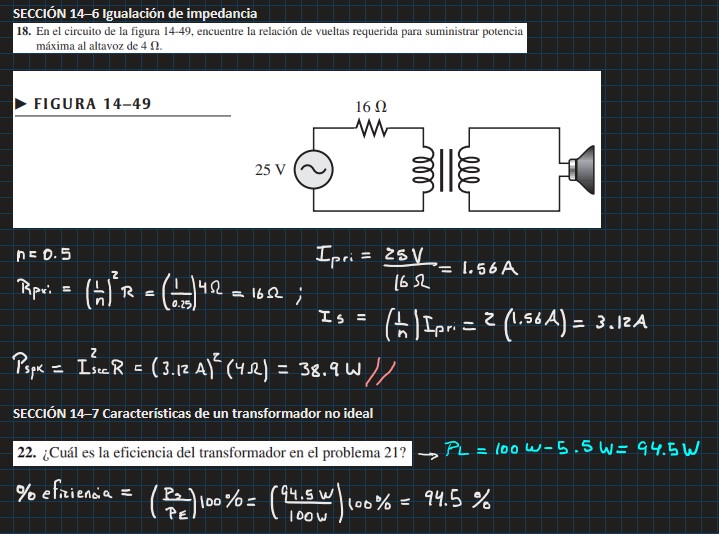 SECCIÓN 14–6 Igualación de impedancia
18. En el circuito de la figura 14-49, encuentre la relación de vueltas requerida para suministrar potencia
máxima al altavoz de 4 Ω.
▶ FIGURA 14–49
16 Ω
25 V
n = 0.5
Rpri = (1/n)² R = (1/0.25) 4Ω = 16Ω ;
Ipri = 25V/16Ω = 1.56 A
Is = (1/n) Ipri = 2 (1.56A) = 3.12A
Pspk = I²sec R = (3.12 A)² (4Ω) = 38.9 W //
SECCIÓN 14–7 Características de un transformador no ideal
22. ¿Cuál es la eficiencia del transformador en el problema 21? → PL = 100 W - 5.5 W = 94.5 W
% eficiencia = (PL/PE) 100 % = (94.5 W/100 W) 100 % = 94.5 %